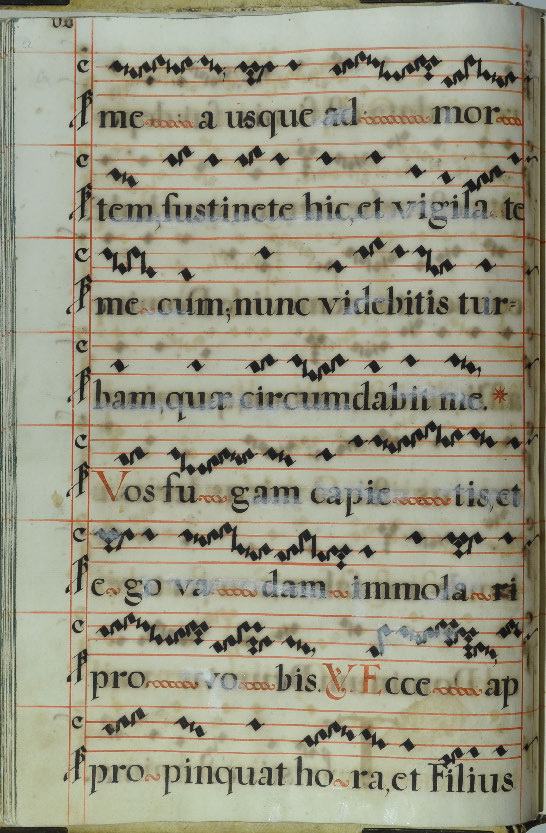 me a usque ad mor
tem, sustinete hic, et vigila te
me cum; nunc videbitis tur-
bam, quæ circumdabit me. *
Vos fu gam capie tis, et
e go va dam immola ri
pro vo bis. V Ecce ap
pro pinquat ho ra, et Filius